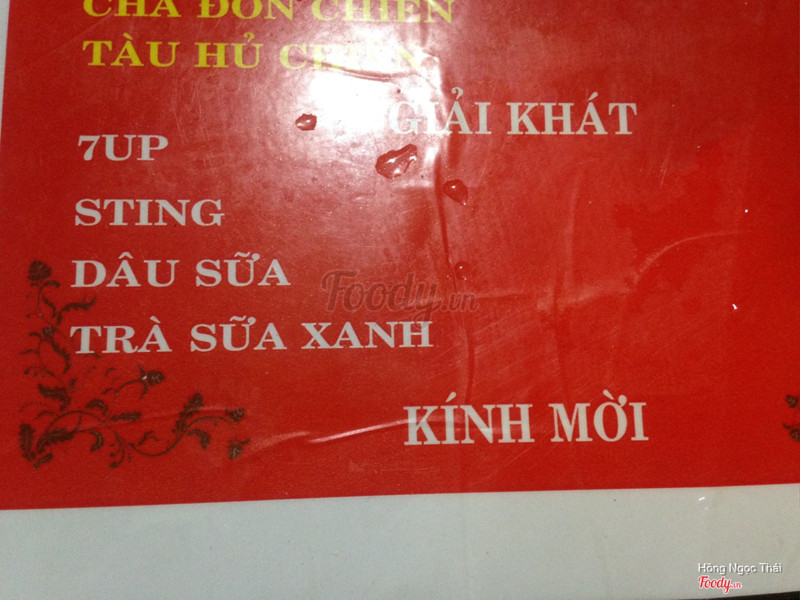 CHẢ ĐÒN CHIÊN
TÀU HỦ CHIÊN
GIẢI KHÁT
7UP
STING
DÂU SỮA
Foody.vn
TRÀ SỮA XANH
KÍNH MỜI
Hồng Ngọc Thái
Foody.vn